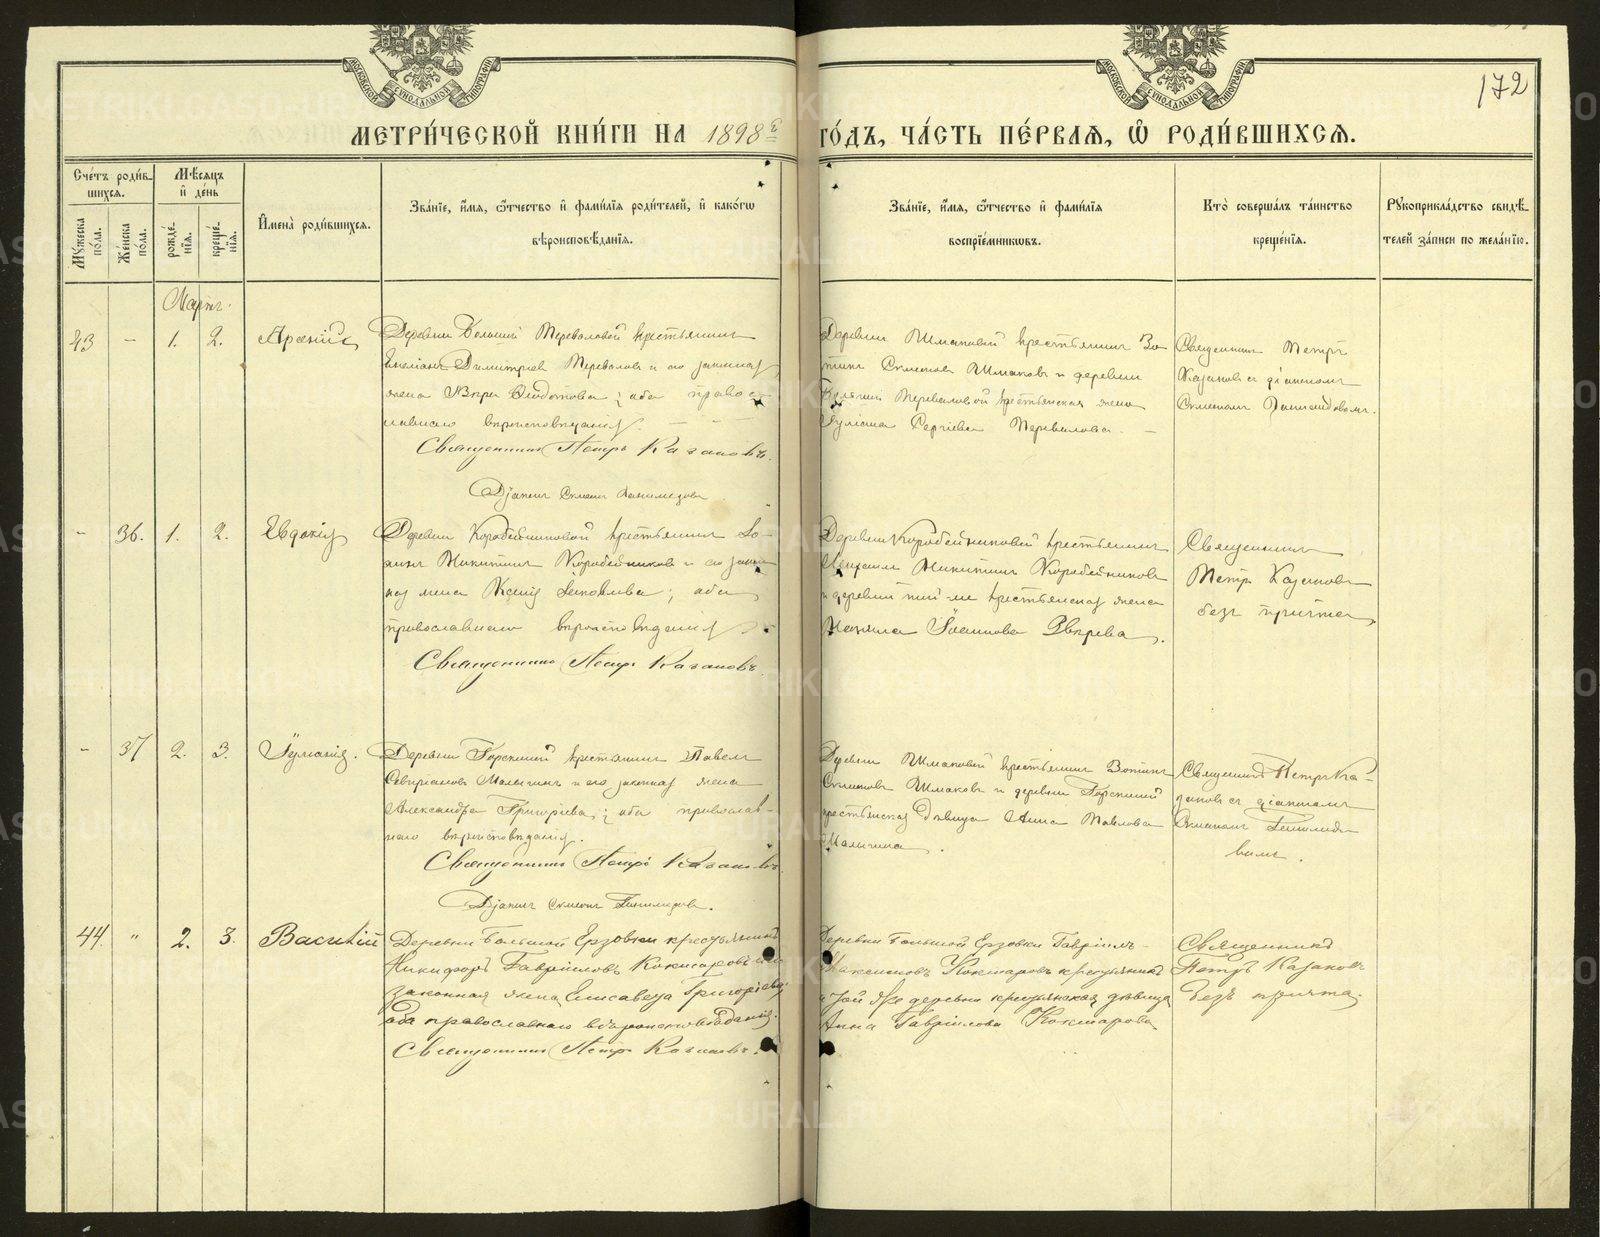 172
МОСКОВСКОЙ СѴНОДАЛЬНОЙ ТИПОГРАФІИ
МОСКОВСКОЙ СѴНОДАЛЬНОЙ ТИПОГРАФІИ
МЕТРИ́ЧЕСКОЙ КНИ́ГИ НА 1898й ГО́ДЪ, ЧА́СТЬ ПЕ́РВАЯ, Ѡ҆ РОДИ́ВШИХСЯ.
Сче́тъ роди́в-
шихся.
Мꙋ́жеска по́ла.
Же́нска по́ла.
Мѣ́сяцъ
и҆ де́нь
рожде́-
нїѧ.
креще́-
нїѧ.
И҆мена̀ роди́вшихся.
Зва́нїе, и҆́мѧ, ѻ҆́тчество и҆ фами́лїѧ роди́телей, и҆ како́гѡ
вѣроисповѣ́данїѧ.
Зва́нїе, и҆́мѧ, ѻ҆́тчество и҆ фами́лїѧ
воспрїе́мникѡвъ.
Кто̀ соверша́лъ та́инство
креще́нїѧ.
Рꙋкоприкла́дство свидѣ́-
телей за́писи по жела́нїю.
Мартъ.
43 - 1. 2. Арсеній
Деревни Большой Переваловой крестьянинъ
Димитріевъ Переваловъ и его законная
жена Вѣра Ѳеодотова; оба правос-
лавнаго вѣроисповѣданія.
Священникъ Петръ Казановъ.
Діаконъ Симеонъ
Деревни Шмаковой крестьянинъ Зо-
тикъ Симеоновъ Шмаковъ и деревни
Переваловой крестьянская жена
Іуліана Сергіева Перевалова.
Священникъ Петръ
Казановъ съ діакономъ
Симеономъ
- 36. 1. 2. Евдокія
Деревни Коробейниковой крестьянинъ Іо-
аннъ Никитинъ Коробейниковъ и его закон-
ная жена Ксенія Іаковлева; оба
православнаго вѣроисповѣданія
Священникъ Петръ Казановъ.
Деревни Коробейниковой крестьянинъ
Никитинъ Коробейниковъ
и деревни той-же крестьянская жена
Іоаннова Звѣрева.
Священникъ
Петръ Казановъ
безъ причта.
- 37 2. 3. Іуліанія.
Деревни Горскиной крестьянинъ Павелъ
Севиріановъ Малыгинъ и его законная жена
Александра Григоріева; оба православ-
наго вѣроисповѣданія.
Священникъ Петръ Казановъ.
Діаконъ Симеонъ
Деревни Шмаковой крестьянинъ Зотикъ
Симеоновъ Шмаковъ и деревни Горскиной
крестьянская дѣвица Анна Павлова
Малыгина.
Священникъ Петръ Ка-
зановъ съ діакономъ
Симеономъ
44. " 2. 3. Василій
Деревни Большой Ерзовки крестьянинъ
Никифоръ Гавріиловъ Кокшаровъ и его
законная жена Елисавета Григоріева,
оба православнаго вѣроисповѣданія.
Священникъ Петръ Казановъ.
Деревни Большой Ерзовки Гавріилъ
Максимовъ Кокшаровъ крестьянинъ
и той же деревни крестьянская дѣвица
Анна Гавріилова Кокшарова
Священникъ
Петръ Казановъ
безъ причта.
METRIKI.GASO-URAL.RU